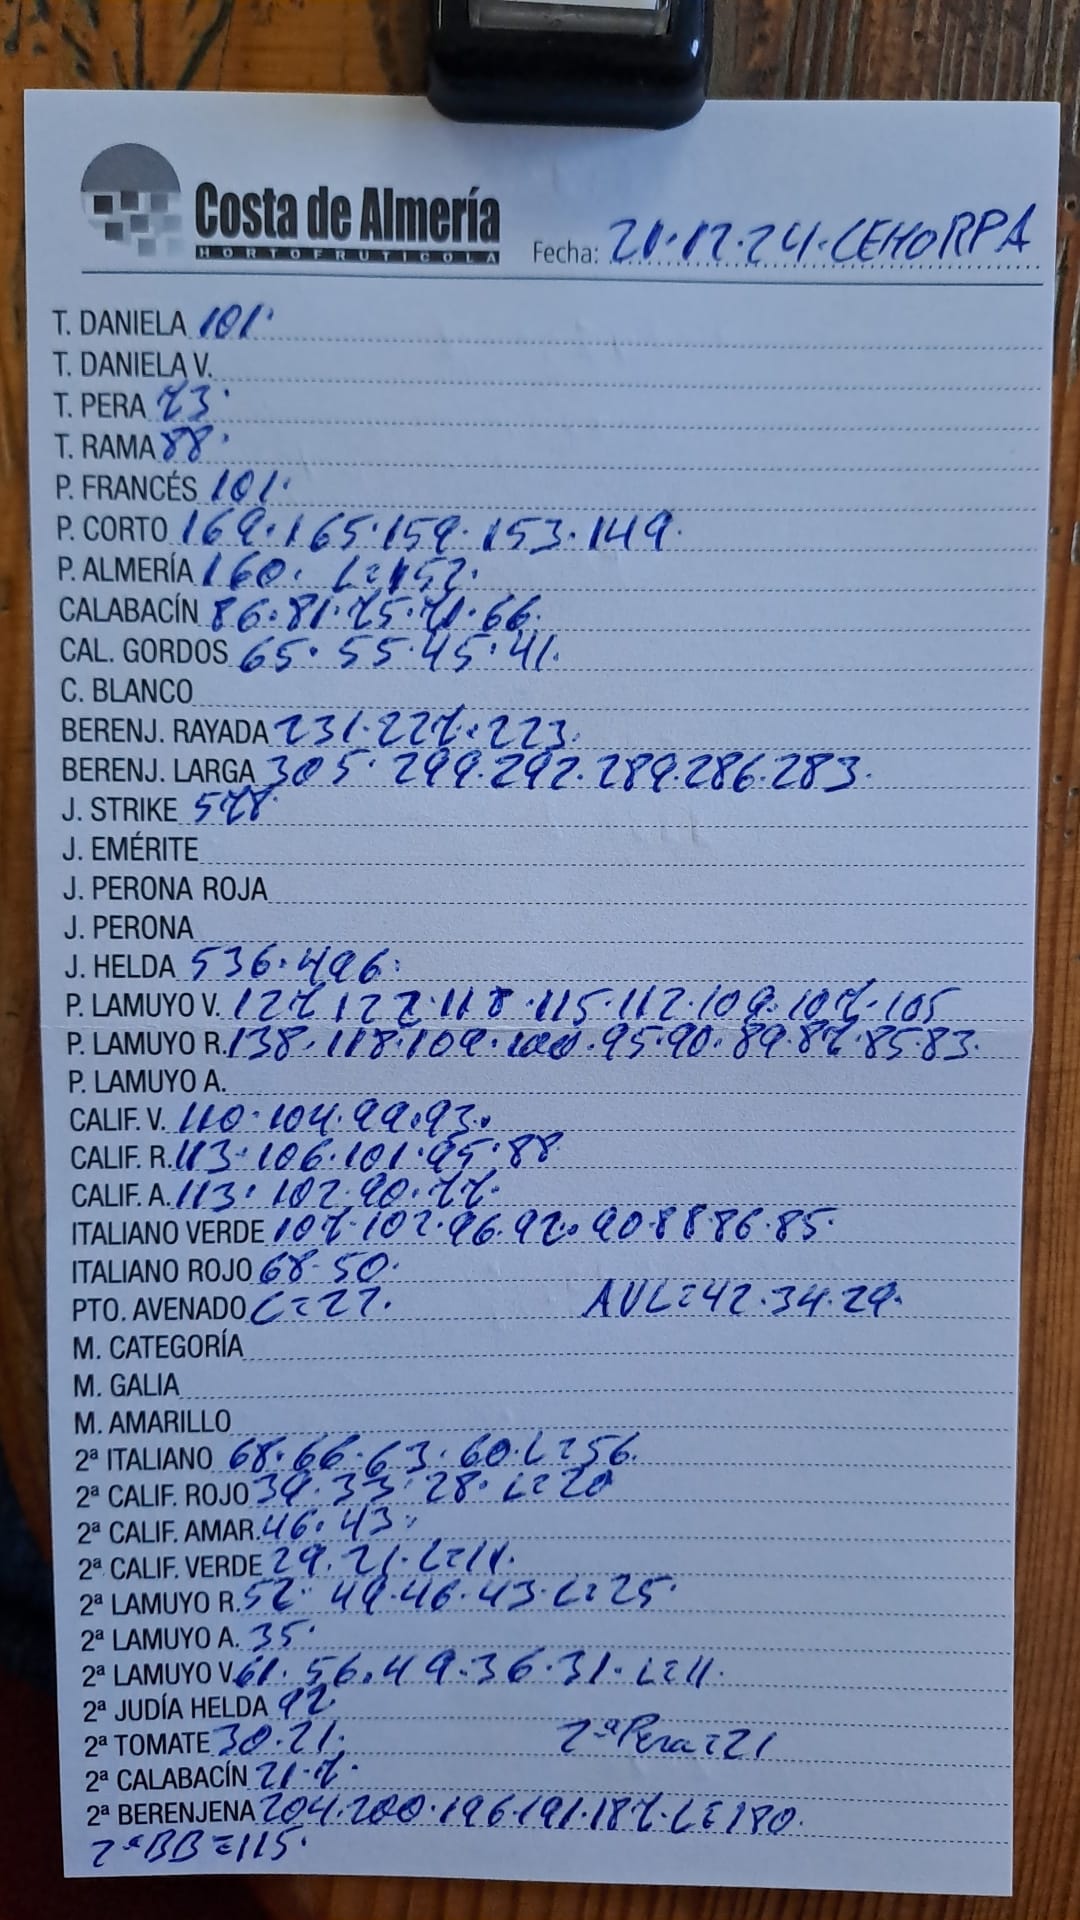 Costa de Almería
HORTOFRUTICOLA
Fecha: 21·12·24·CEHORPA
T. DANIELA 101·
T. DANIELA V.
T. PERA 73·
T. RAMA 88·
P. FRANCÉS 101·
P. CORTO 169·165·159·153·149·
P. ALMERÍA 160· L=152·
CALABACÍN 86·81·75·71·66·
CAL. GORDOS 65·55·45·41·
C. BLANCO
BERENJ. RAYADA 231·227·223·
BERENJ. LARGA 305·299·292·289·286·283·
J. STRIKE 578
J. EMÉRITE
J. PERONA ROJA
J. PERONA
J. HELDA 536·496·
P. LAMUYO V. 127 122·118·115·112·109·107·105
P. LAMUYO R. 138·118·109·100·95·90·89·87·85·83·
P. LAMUYO A.
CALIF. V. 110·104·99·93·
CALIF. R. 113·106·101·95·88
CALIF. A. 113·102·90·77·
ITALIANO VERDE 107·102·96·92·90·88·86·85·
ITALIANO ROJO 68·50·
PTO. AVENADO C=27· AVL=42·34·29·
M. CATEGORÍA
M. GALIA
M. AMARILLO
2ª ITALIANO 68·66·63·60·L=56·
2ª CALIF. ROJO 39·33·28·L=20
2ª CALIF. AMAR. 46·43·
2ª CALIF. VERDE 29·21·L=11·
2ª LAMUYO R. 52·49·46·43·L=25·
2ª LAMUYO A. 35·
2ª LAMUYO V. 61·56·49·36·31·L=11·
2ª JUDÍA HELDA 92·
2ª TOMATE 30·21· 2ªPera=21
2ª CALABACÍN 21·7·
2ª BERENJENA 204·200·196·191·187·L=180·
2ªBB=115·